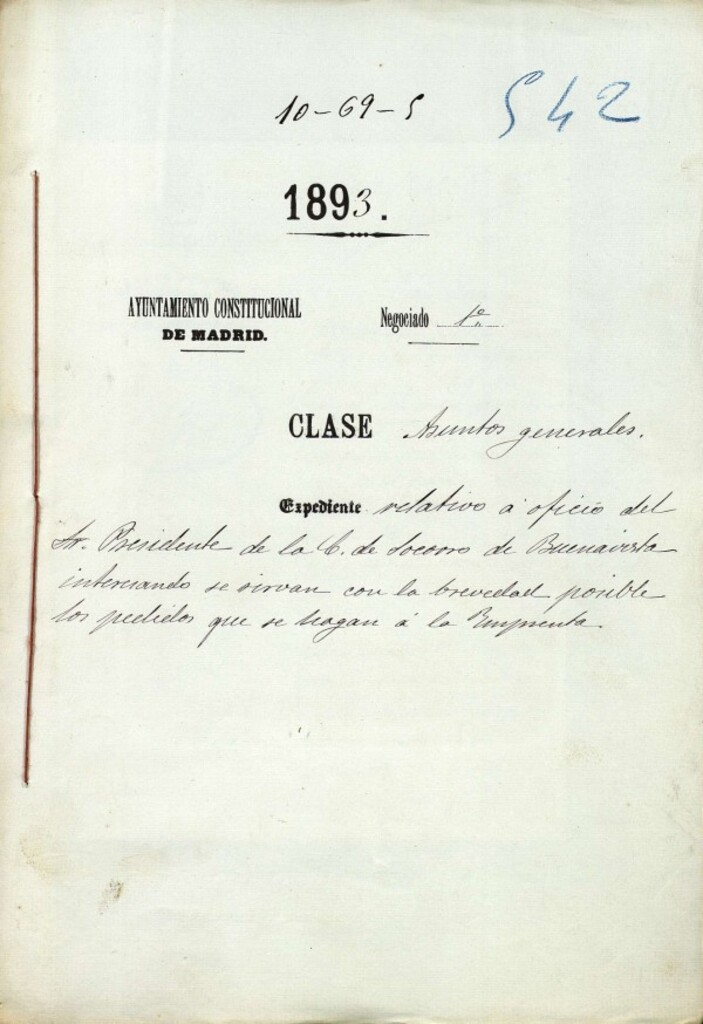 10-69-5
542
1893.
AYUNTAMIENTO CONSTITUCIONAL
DE MADRID.
Negociado 1º
CLASE Asuntos generales.
Expediente relativo a oficio del
Sr. Presidente de la C. de Socorro de Buenavista
interesando se sirvan con la brevedad posible
los pedidos que se hagan á la Imprenta.